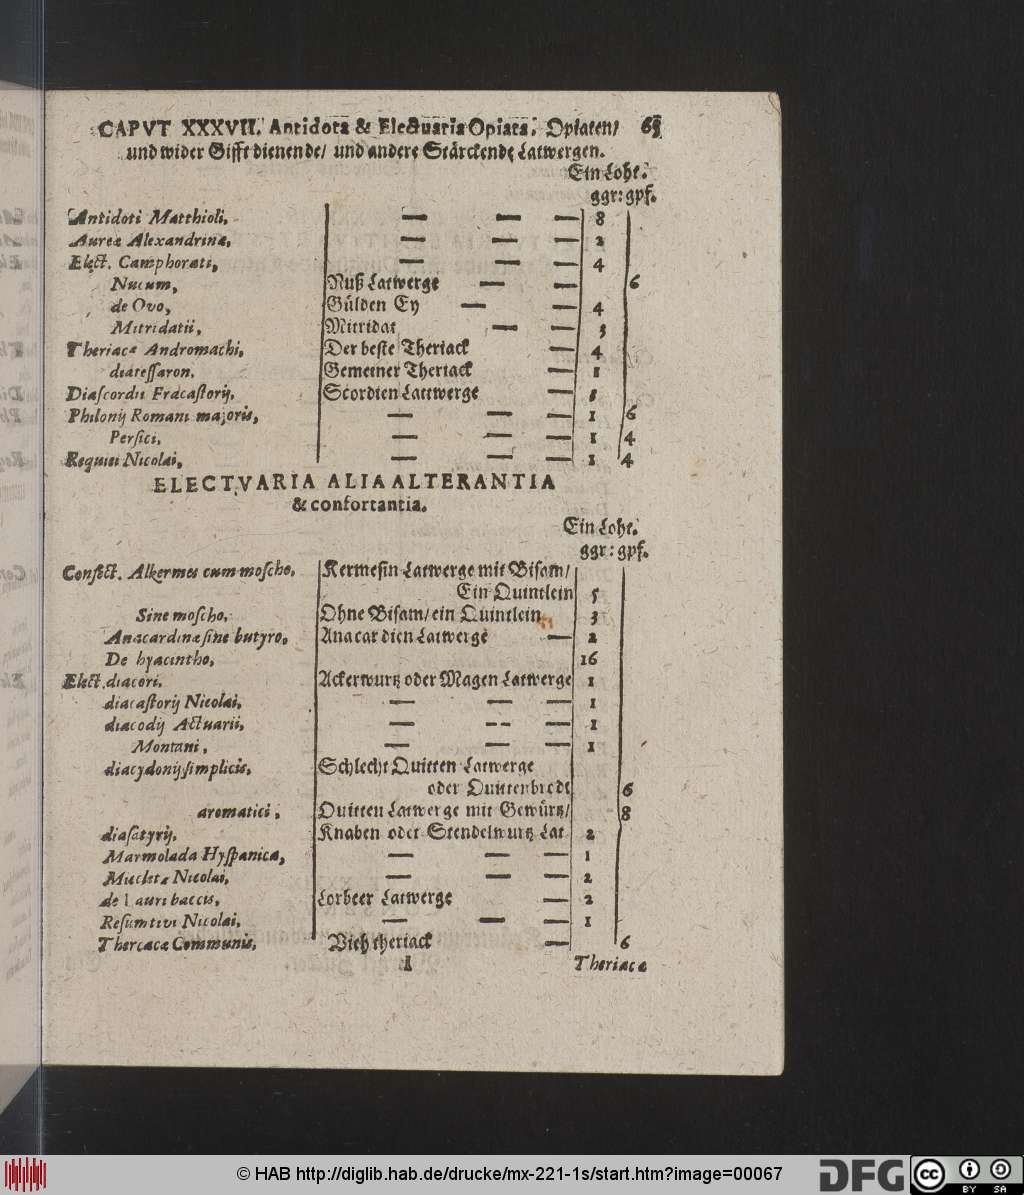 CAPVT XXXVII. Antidota & Electuaria Opiata. Opiaten/ 65
und wider Gifft dienende/ und andere Stärckende Latwergen.
Ein Loht.
ggr: gpf.
Antidoti Matthioli, — — — 8
Aureæ Alexandrinæ, — — — 2
Elect. Camphorati, — — — 4
Nucum, Nuß Latwerge — — 6
de Ovo, Gülden Ey — — 4
Mitridatii, Mitridat — — 3
Theriacæ Andromachi, Der beste Theriack — 4
diatessaron. Gemeiner Theriack — 1
Diascordii Fracastorij, Scordien Lattwerge —
Philonij Romani majoris, — — — 1 6
Persici, — — — 1 4
Requiei Nicolai, — — — 1 4
ELECTVARIA ALIA ALTERANTIA
& confortantia.
Ein Loht.
ggr: gpf.
Confect. Alkermes cum moscho, Kermesin Latwerge mit Bisam/
Ein Quintlein 5
Sine moscho, Ohne Bisam/ ein Quintlein 3
Anacardinæ sine butyro, Anacardien Latwerge — 2
De hyacintho, 16
Elect. diacori. Ackerwurtz oder Magen Latwerge 1
diacastorij Nicolai, — — — 1
diacodij Actuarii, — — — 1
Montani, — — — 1
diacydonij simplicis, Schlecht Quitten Latwerge
oder Quittenbrodt 6
aromatici, Quitten Latwerge mit Gewürtz/ 8
diasatyrij, Knaben oder Stendelwurtz Lat 2
Marmolada Hyspanica, — — — 1
Mucletæ Nicolai, — — — 2
de Lauri baccis, Lorbeer Latwerge — 2
Resumtivi Nicolai, — — — 1
Thercacæ Communis, Vieh theriack — 6
I Theriacæ
© HAB http://diglib.hab.de/drucke/mx-221-1s/start.htm?image=00067
DFG
cc BY SA